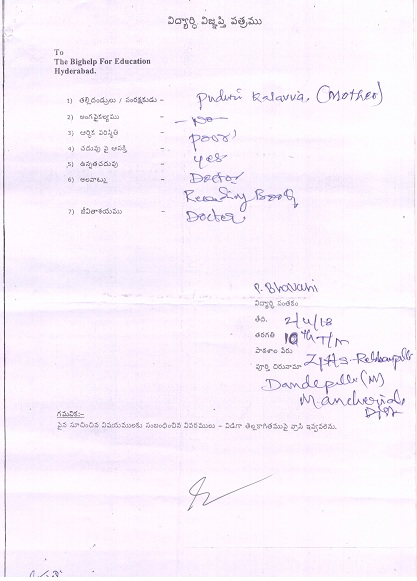 విద్యార్థి విజ్ఞప్తి పత్రము
To
The Bighelp For Education
Hyderabad.
1) తల్లిదండ్రులు / సంరక్షకుడు - Puduri Kalavva, (Mother)
2) అంగవైకల్యము - No -
3) ఆర్థిక పరిస్థితి - poor
4) చదువు పై ఆసక్తి - yes
5) ఉన్నతచదువు - Doctor
6) అలవాట్లు - Reading Book
7) జీవితాశయము - Doctor
P. Bhavani
విద్యార్థి సంతకం
తేది. 2/4/18
తరగతి 10th T/M
పాఠశాల పేరు
పూర్తి చిరునామా Z.P.H.S.
Dandepally (M)
Mancherial
Dist
గమనిక:-
పైన సూచించిన విషయములకు సంబంధించిన వివరములు - విడిగా తెల్లకాగితముపై వ్రాసి ఇవ్వవలెను.